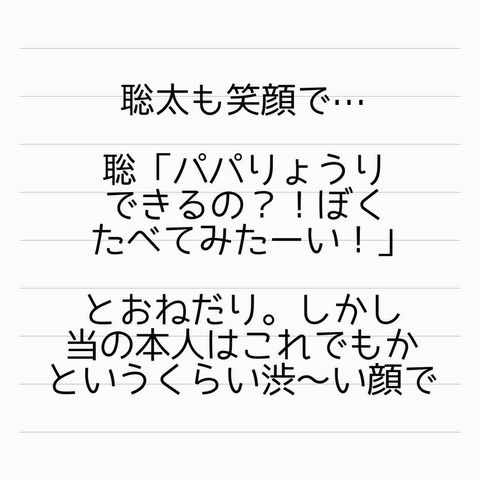 聡太も笑顔で…
聡「パパりょうり
できるの？！ぼく
たべてみたーい！」
とおねだり。しかし
当の本人はこれでもか
というくらい渋〜い顔で